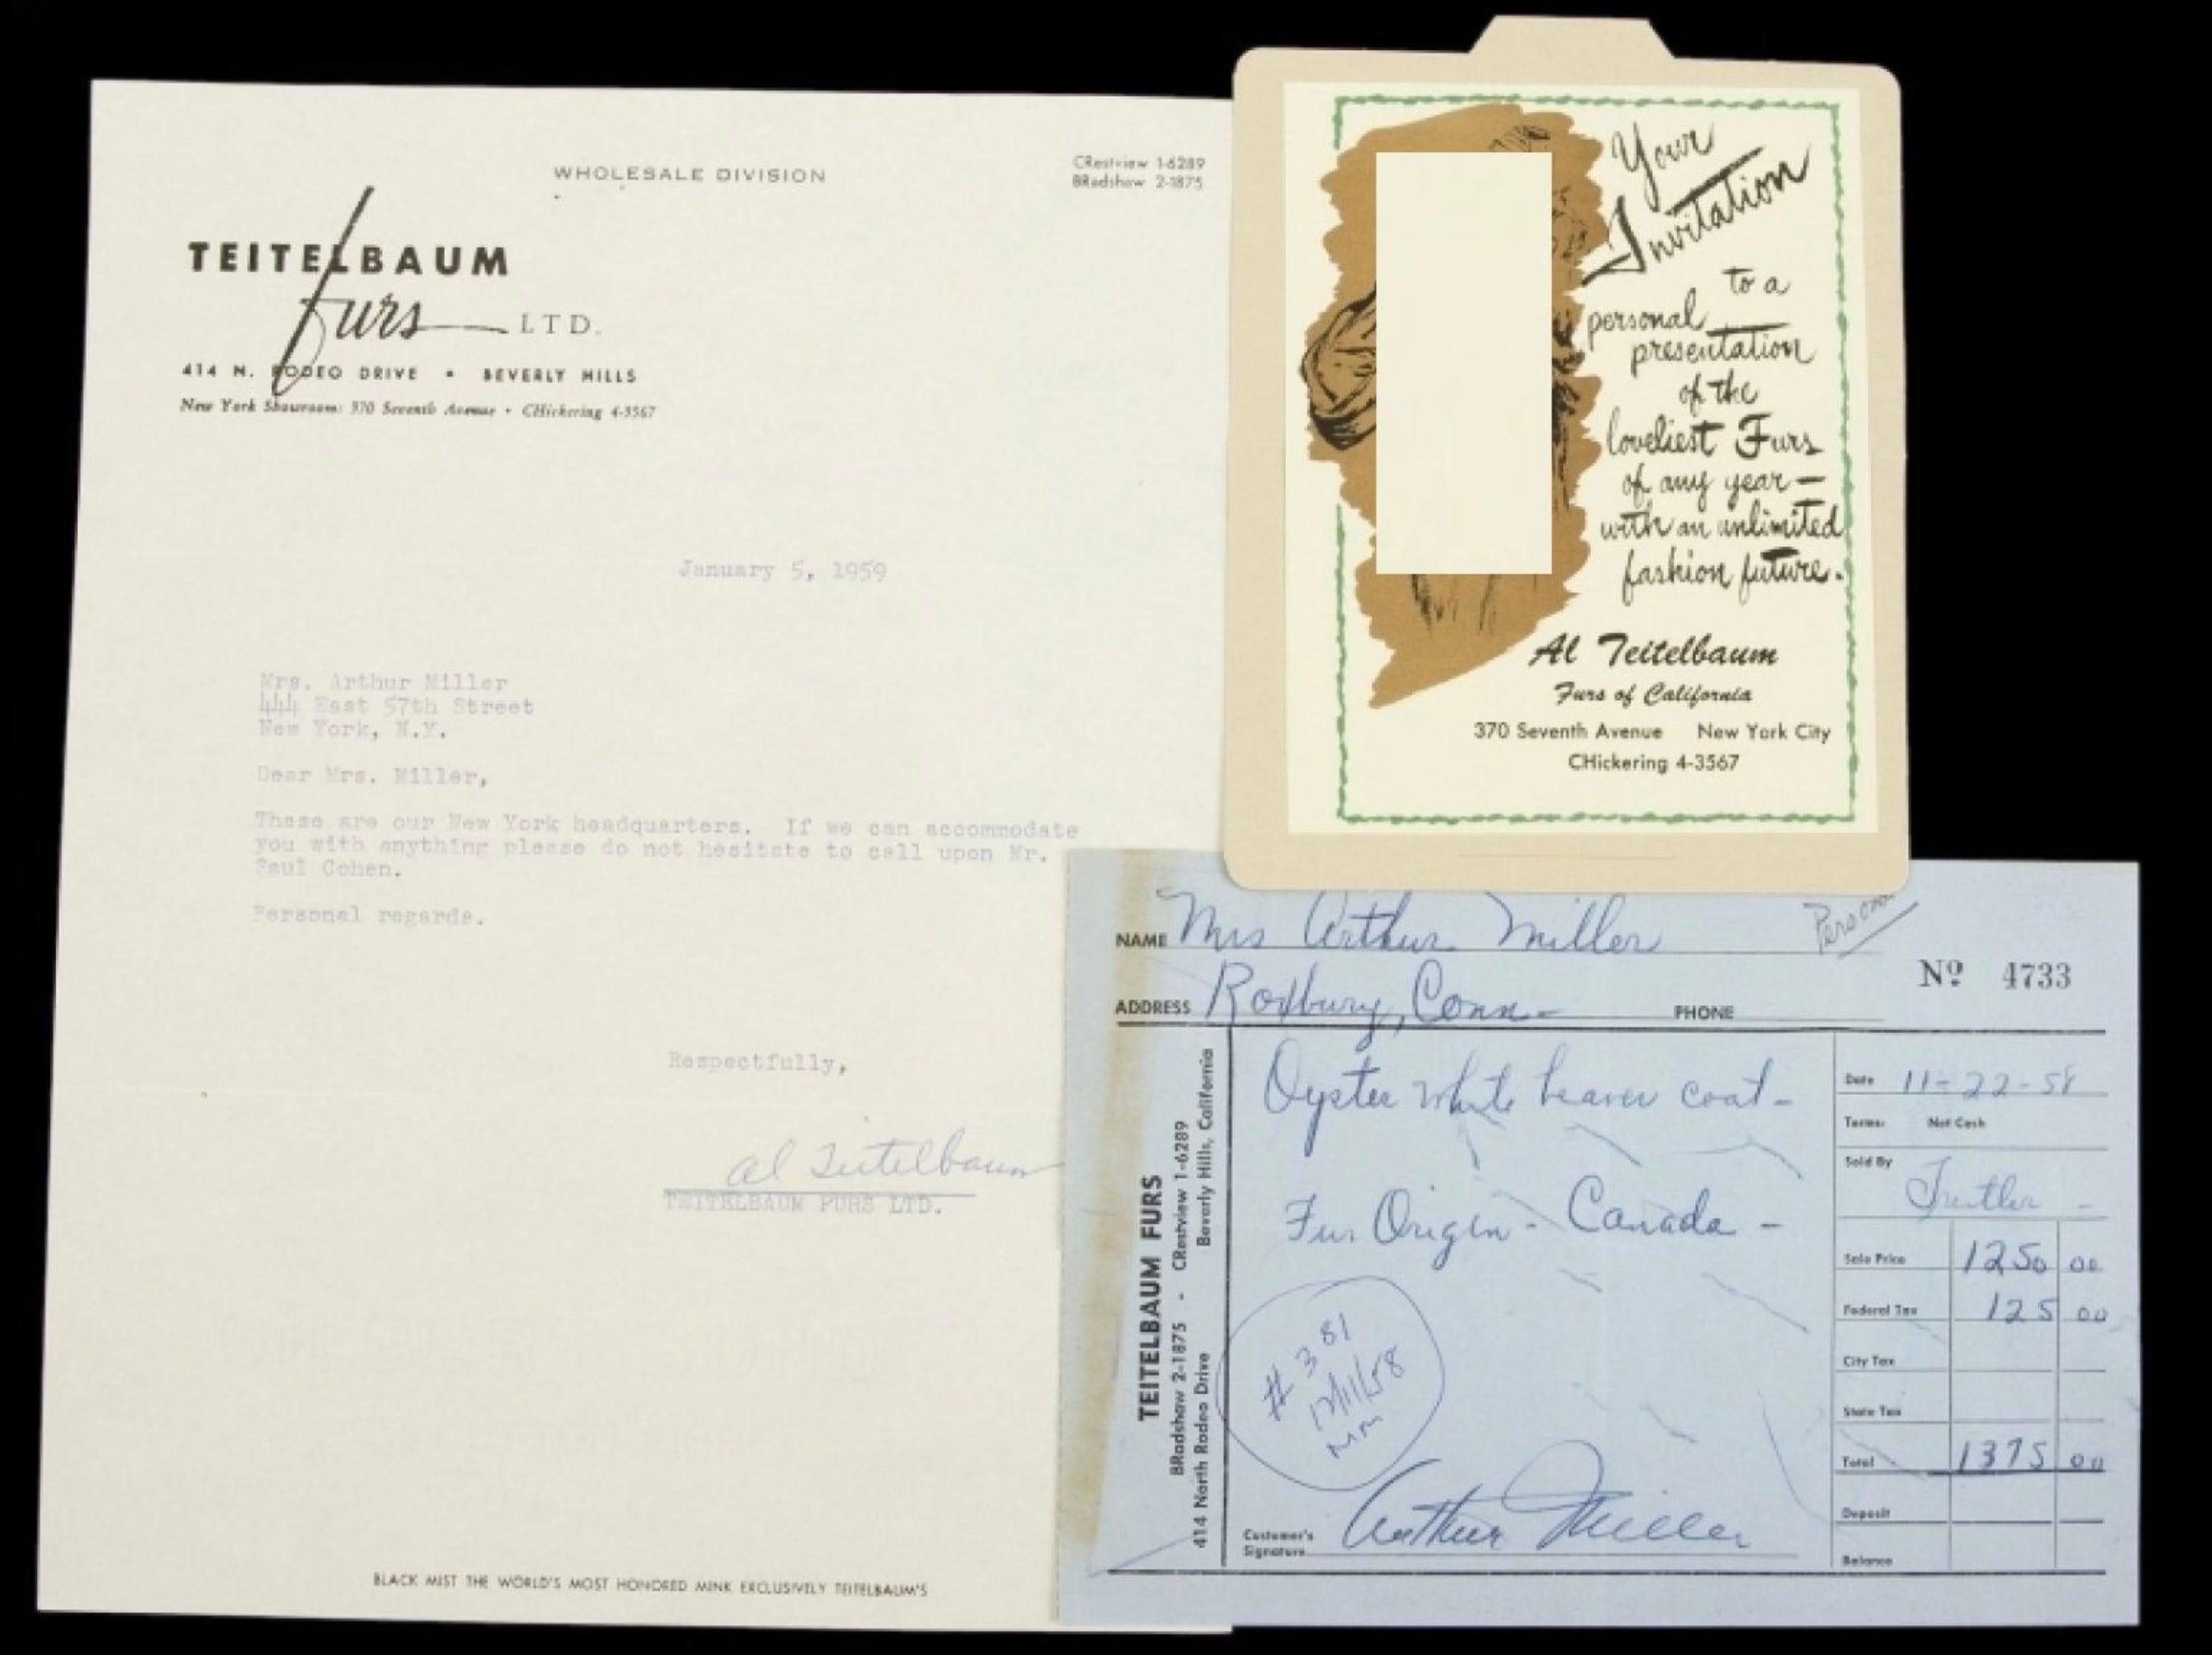 WHOLESALE DIVISION
CRestview 1-6289
BRadshaw 2-1875
TEITELBAUM
Furs LTD.
414 N. RODEO DRIVE • BEVERLY HILLS
New York Showroom: 370 Seventh Avenue • CHickering 4-3567
January 5, 1959
Mrs. Arthur Miller
444 East 57th Street
New York, N.Y.
Dear Mrs. Miller,
These are our New York headquarters. If we can accommodate
you with anything please do not hesitate to call upon Mr.
Saul Cohen.
Personal regards.
Respectfully,
Al Teitelbaum
TEITELBAUM FURS LTD.
BLACK MIST THE WORLD'S MOST HONORED MINK EXCLUSIVELY TEITELBAUM'S
Your
Invitation
to a
personal
presentation
of the
loveliest Furs
of any year—
with an unlimited
fashion future.
Al Teitelbaum
Furs of California
370 Seventh Avenue New York City
CHickering 4-3567
NAME Mrs Arthur Miller
Personal
No 4733
ADDRESS Roxbury, Conn- PHONE
TEITELBAUM FURS
BRadshaw 2-1875 - CRestview 1-6289
414 North Rodeo Drive Beverly Hills, California
Oyster white beaver coat-
Fur Origin - Canada -
#381
12/11/58
MM
Customer's
Signature Arthur Miller
Date 11-22-58
Terms: Net Cash
Sold By
Sale Price 1250 00
Federal Tax 125 00
City Tax
State Tax
Total 1375 00
Deposit
Balance